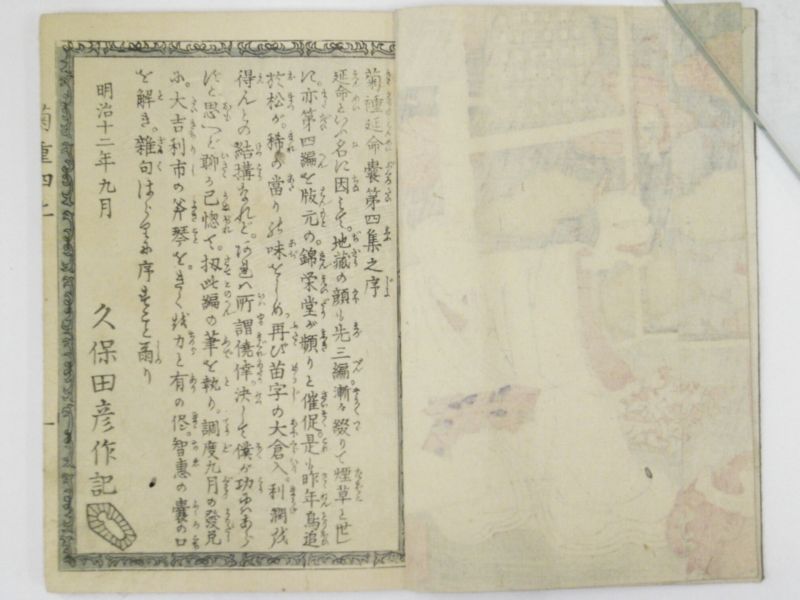 菊種延命嚢第四集之序
延命といふ名に因みて。地蔵の顔も先三編漸々綴りて煙草と世し
に亦第四編を版元の。錦栄堂が頻りと催促是も昨年鳥追
於松が。稀の當り の味をしめ。再び苗字の大倉入。利潤
得んとの結搆なれど。 所謂僥倖。決して僕が功ならあら
ずと思へど聊か己惚て。扨此編の筆を執り。調度九月の發兌
に。大吉利市の斧琴を。きく 力と有の侭。智惠の嚢の口
を解き。雜句 序 爾り
明治十二年九月
久保田彦作記
菊重四上
一